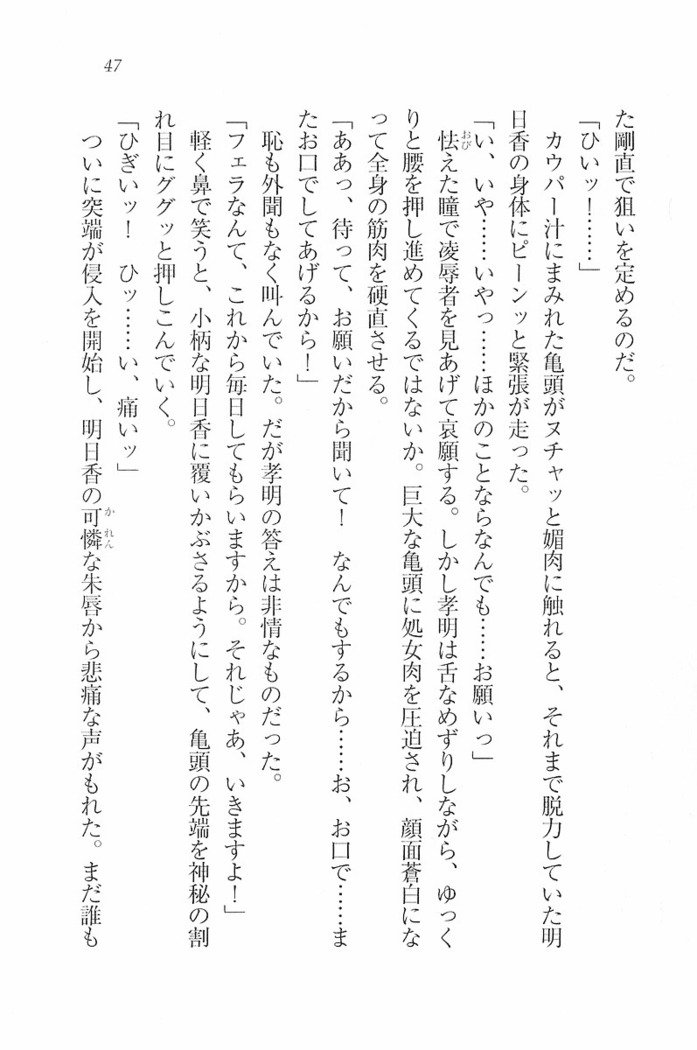 47
た剛直で狙いを定めるのだ。
「ひいッ！……」
カウパー汁にまみれた亀頭がヌチャッと媚肉に触れると、それまで脱力していた明
日香の身体にピーンッと緊張が走った。
「い、いや……いやっ……ほかのことならなんでも……お願いっ」
怯えた瞳で凌辱者を見あげて哀願する。しかし孝明は舌なめずりしながら、ゆっく
りと腰を押し進めてくるではないか。巨大な亀頭に処女肉を圧迫され、顔面蒼白にな
って全身の筋肉を硬直させる。
「ああっ、待って、お願いだから聞いて！　なんでもするから……お、お口で……ま
たお口でしてあげるから！」
恥も外聞もなく叫んでいた。だが孝明の答えは非情なものだった。
「フェラなんて、これから毎日してもらいますから。それじゃあ、いきますよ！」
軽く鼻で笑うと、小柄な明日香に覆いかぶさるようにして、亀頭の先端を神秘の割
れ目にググッと押しこんでいく。
「ひぎいッ！　ひッ……い、痛いッ」
ついに突端が侵入を開始し、明日香の可憐な朱唇から悲痛な声がもれた。まだ誰も